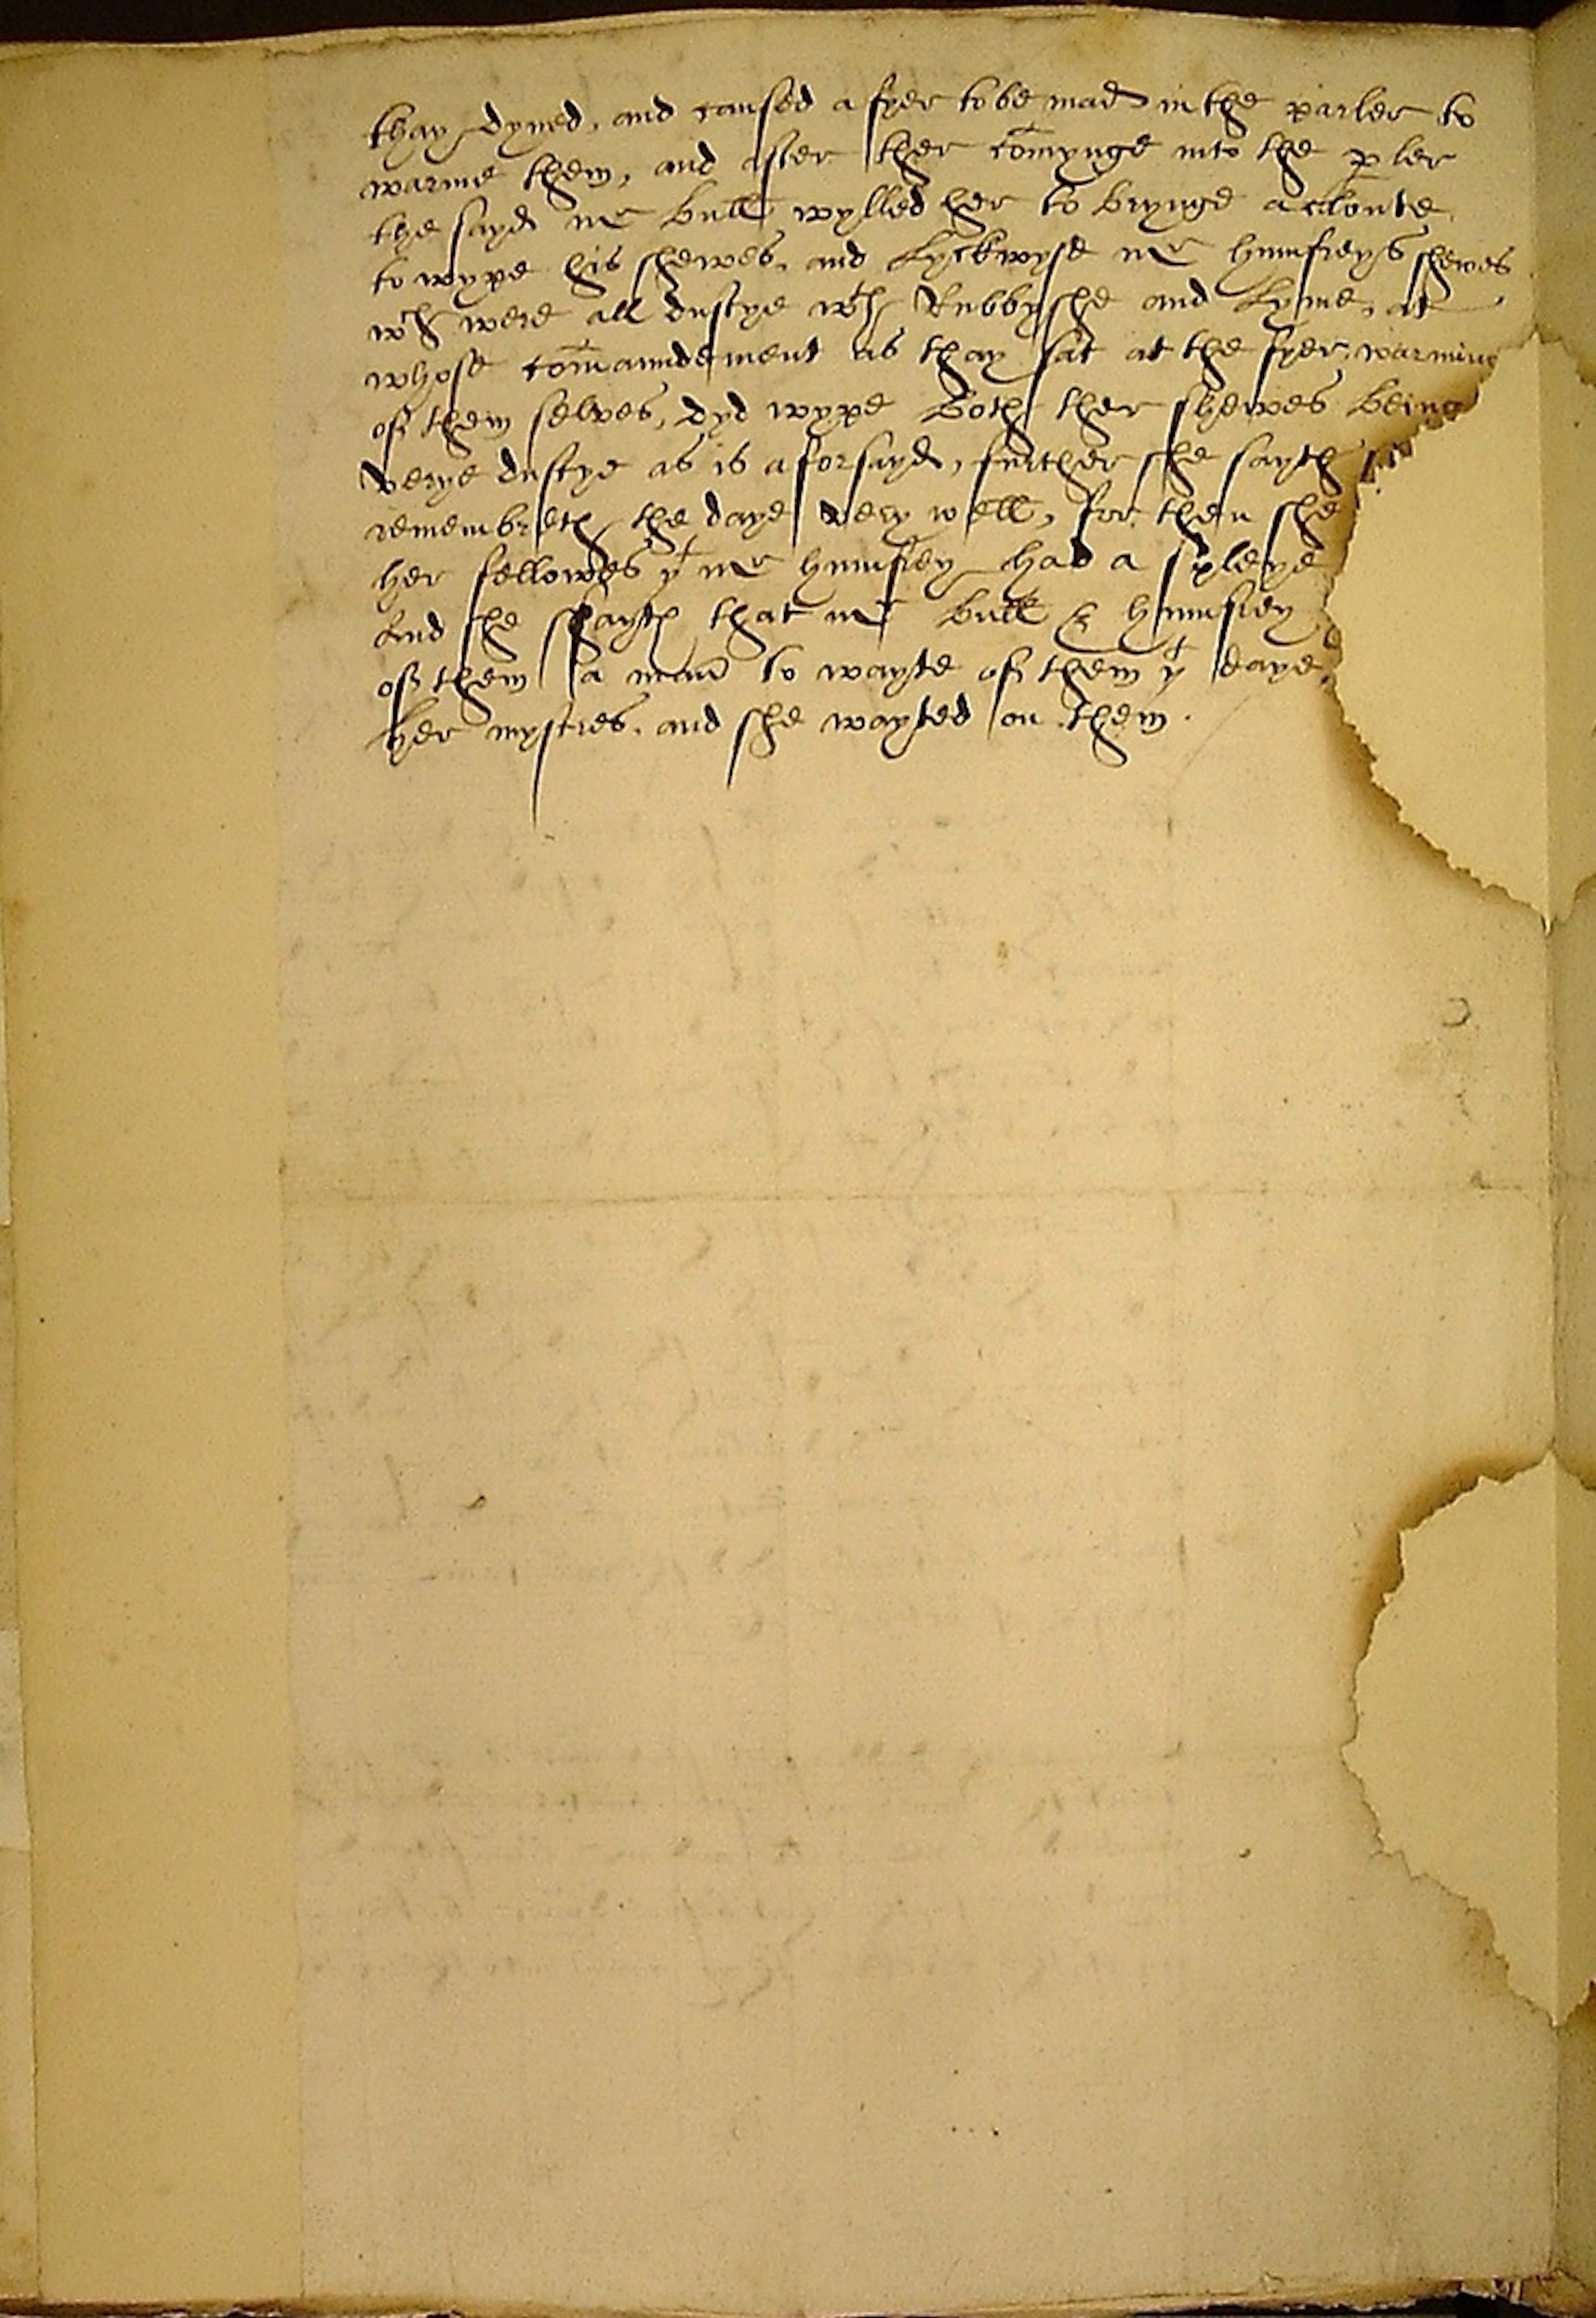 thay dyned, and caused a fyer to be mad in the parler to
warme them, and after ther comynge into the pler
the sayd mr Bull wylled her to brynge a cloute
to wype his shewes, and lyckwyse mr humfreys shewes
wch were all dustye wth Rubbyshe and lyme, at
whose comaundement as thay sat at the fyer, warming
of them selves, dyd wype both ther shewes being
verye dustye as is aforsayd, further she sayth
remembreth the daye very well, for then she
her fellowes yt mr humfrey had a
And she sayth that mr Bull & humfrey
of them a man to wayte of them yt daye
her mystres, and she wayted on them.